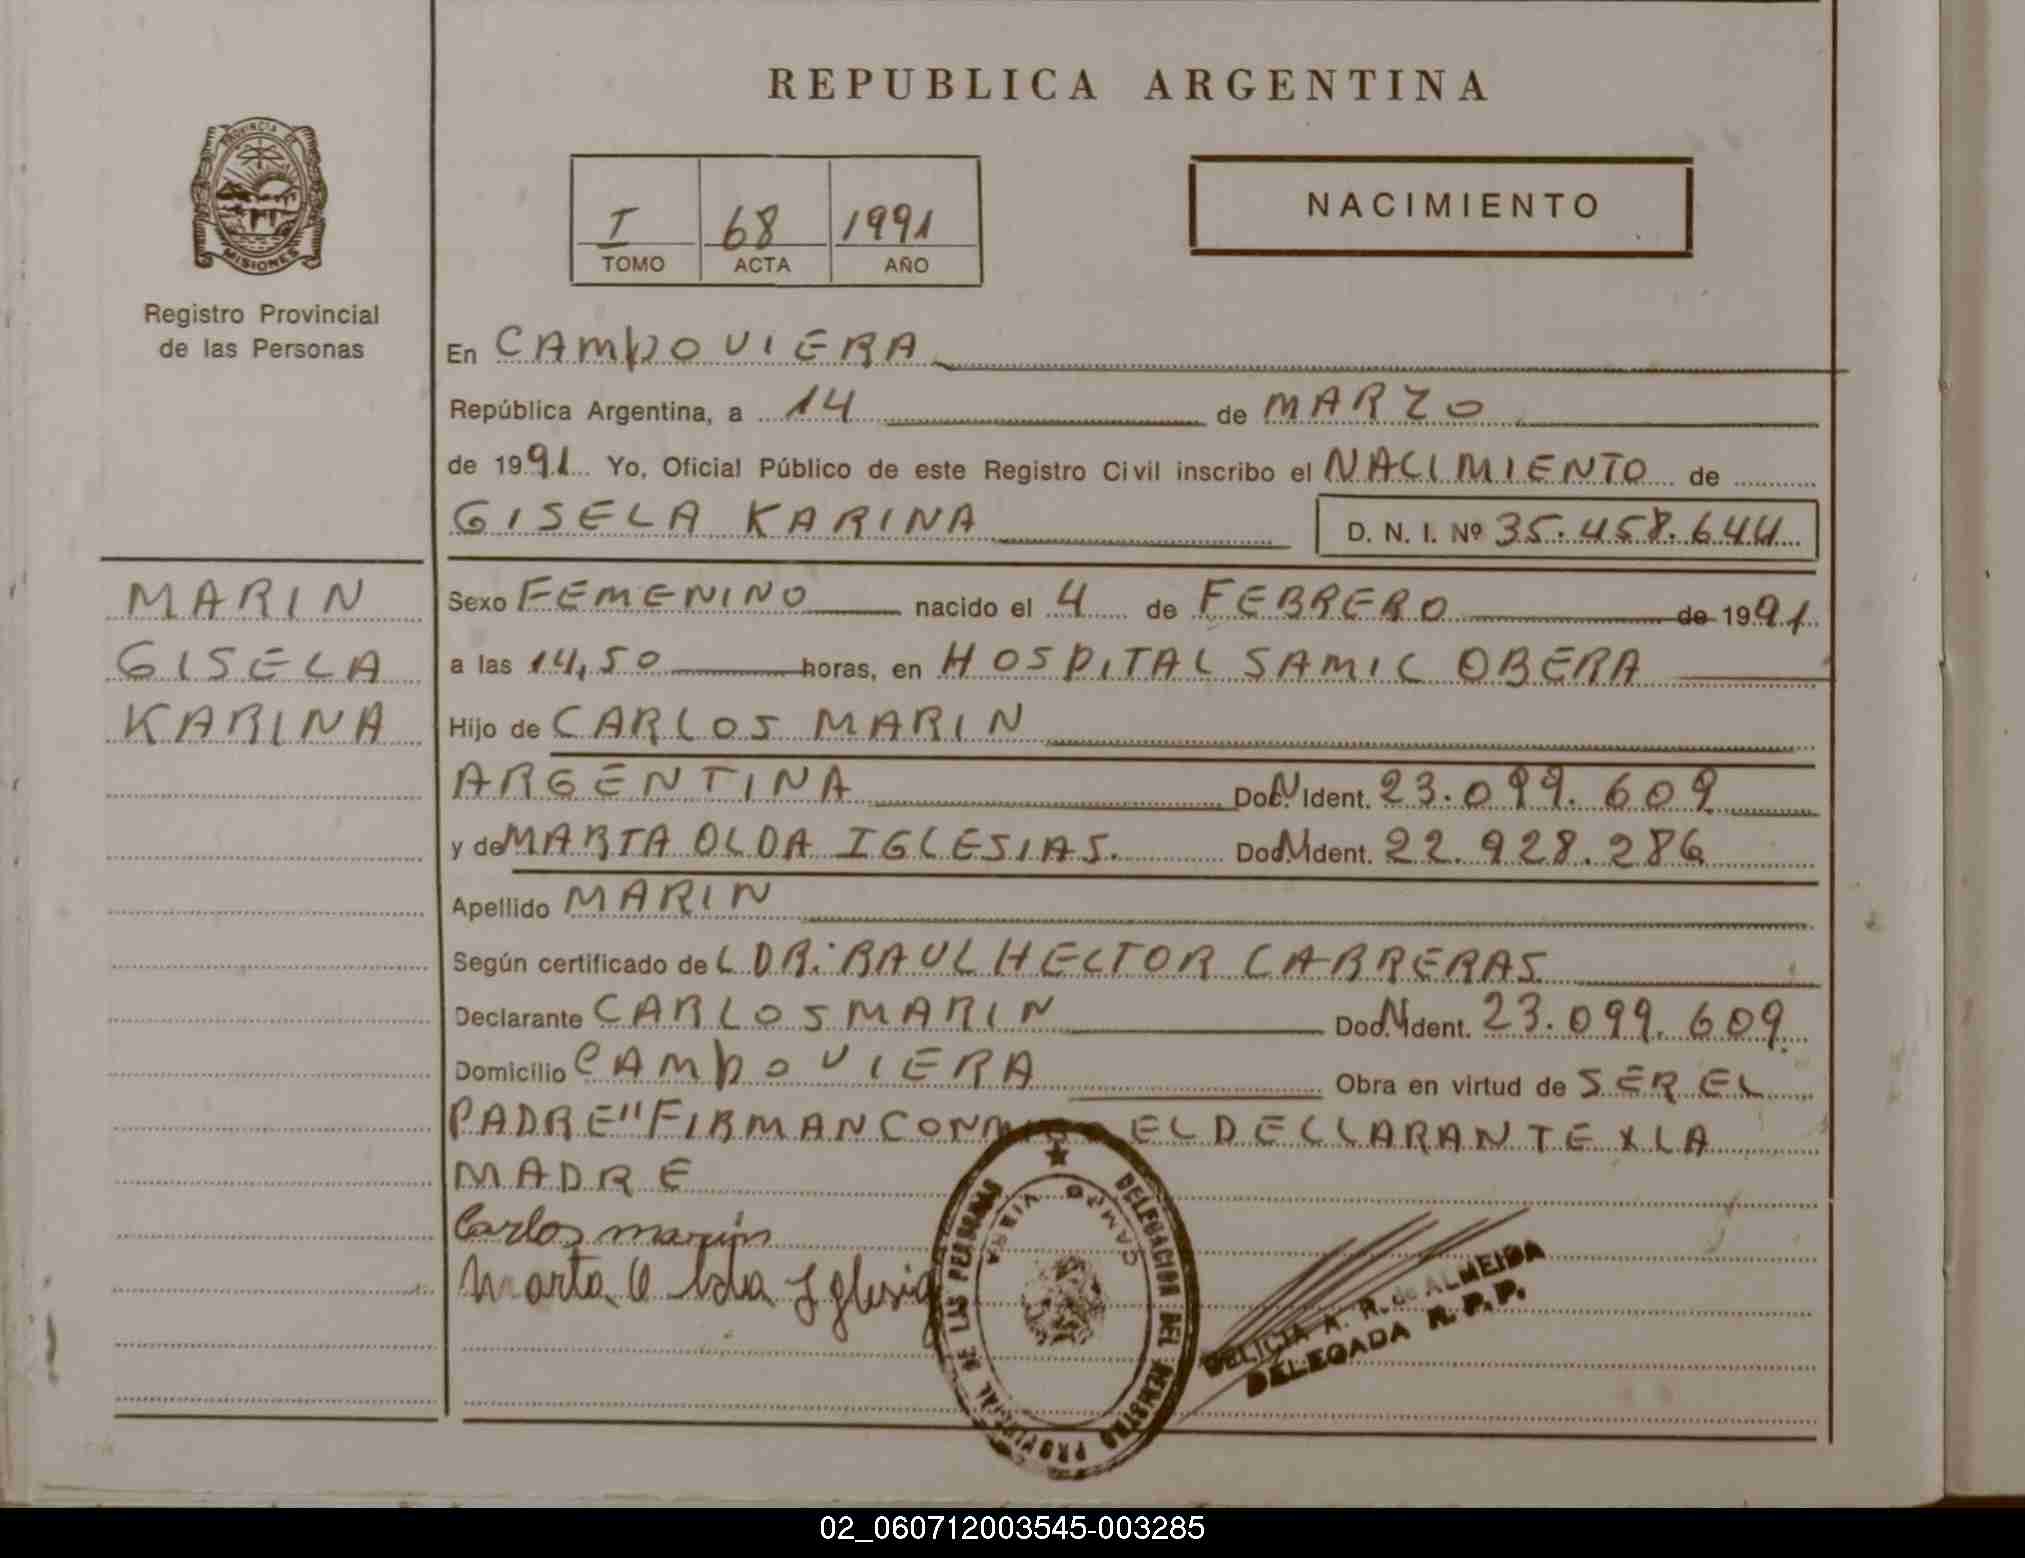 REPUBLICA ARGENTINA
PROVINCIA DE
MISIONES
Registro Provincial
de las Personas
I 68 1991
TOMO ACTA AÑO
NACIMIENTO
En CAMPO VIERA
República Argentina, a 14 de MARZO
de 1991 Yo, Oficial Público de este Registro Civil inscribo el NACIMIENTO de
GISELA KARINA D. N. I. Nº 35.458.644
MARIN
GISELA
KARINA
Sexo FEMENINO nacido el 4 de FEBRERO de 1991
a las 14,50 horas, en HOSPITAL SAMIC OBERA
Hijo de CARLOS MARIN
ARGENTINA Doc. N Ident. 23.099.609
y de MARTA OLDA IGLESIAS. Doc. N Ident. 22.928.286
Apellido MARIN
Según certificado de L DR: RAUL HECTOR CARRERAS
Declarante CARLOS MARIN Doc. N Ident. 23.099.609
Domicilio CAMPO VIERA Obra en virtud de SER EL
PADRE" FIRMAN CONMIGO EL DECLARANTE Y LA
MADRE
Carlos marin
Marta Olda Iglesia
DELEGACION DEL REGISTRO PROVINCIAL DE LAS PERSONAS
CAMPO VIERA
DELICIA A. R. de ALMEIDA
DELEGADA R. P. P.
02_060712003545-003285